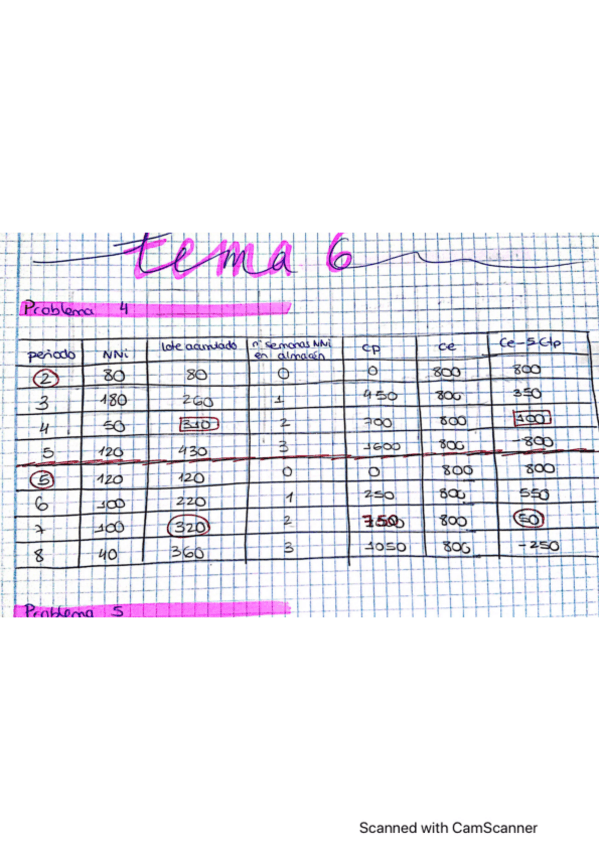 tema 6
Problema 4
periodo NNi lote acumulado nº semanas NNi en almacén Cp Ce Ce-SCtp
2 80 80 0 0 800 800
3 180 260 1 450 800 350
4 50 310 2 700 800 100
5 120 430 3 1600 800 -800
5 120 120 0 0 800 800
6 100 220 1 250 800 550
7 100 320 2 750 800 50
8 40 360 3 1050 800 -250
Problema 5
Scanned with CamScanner